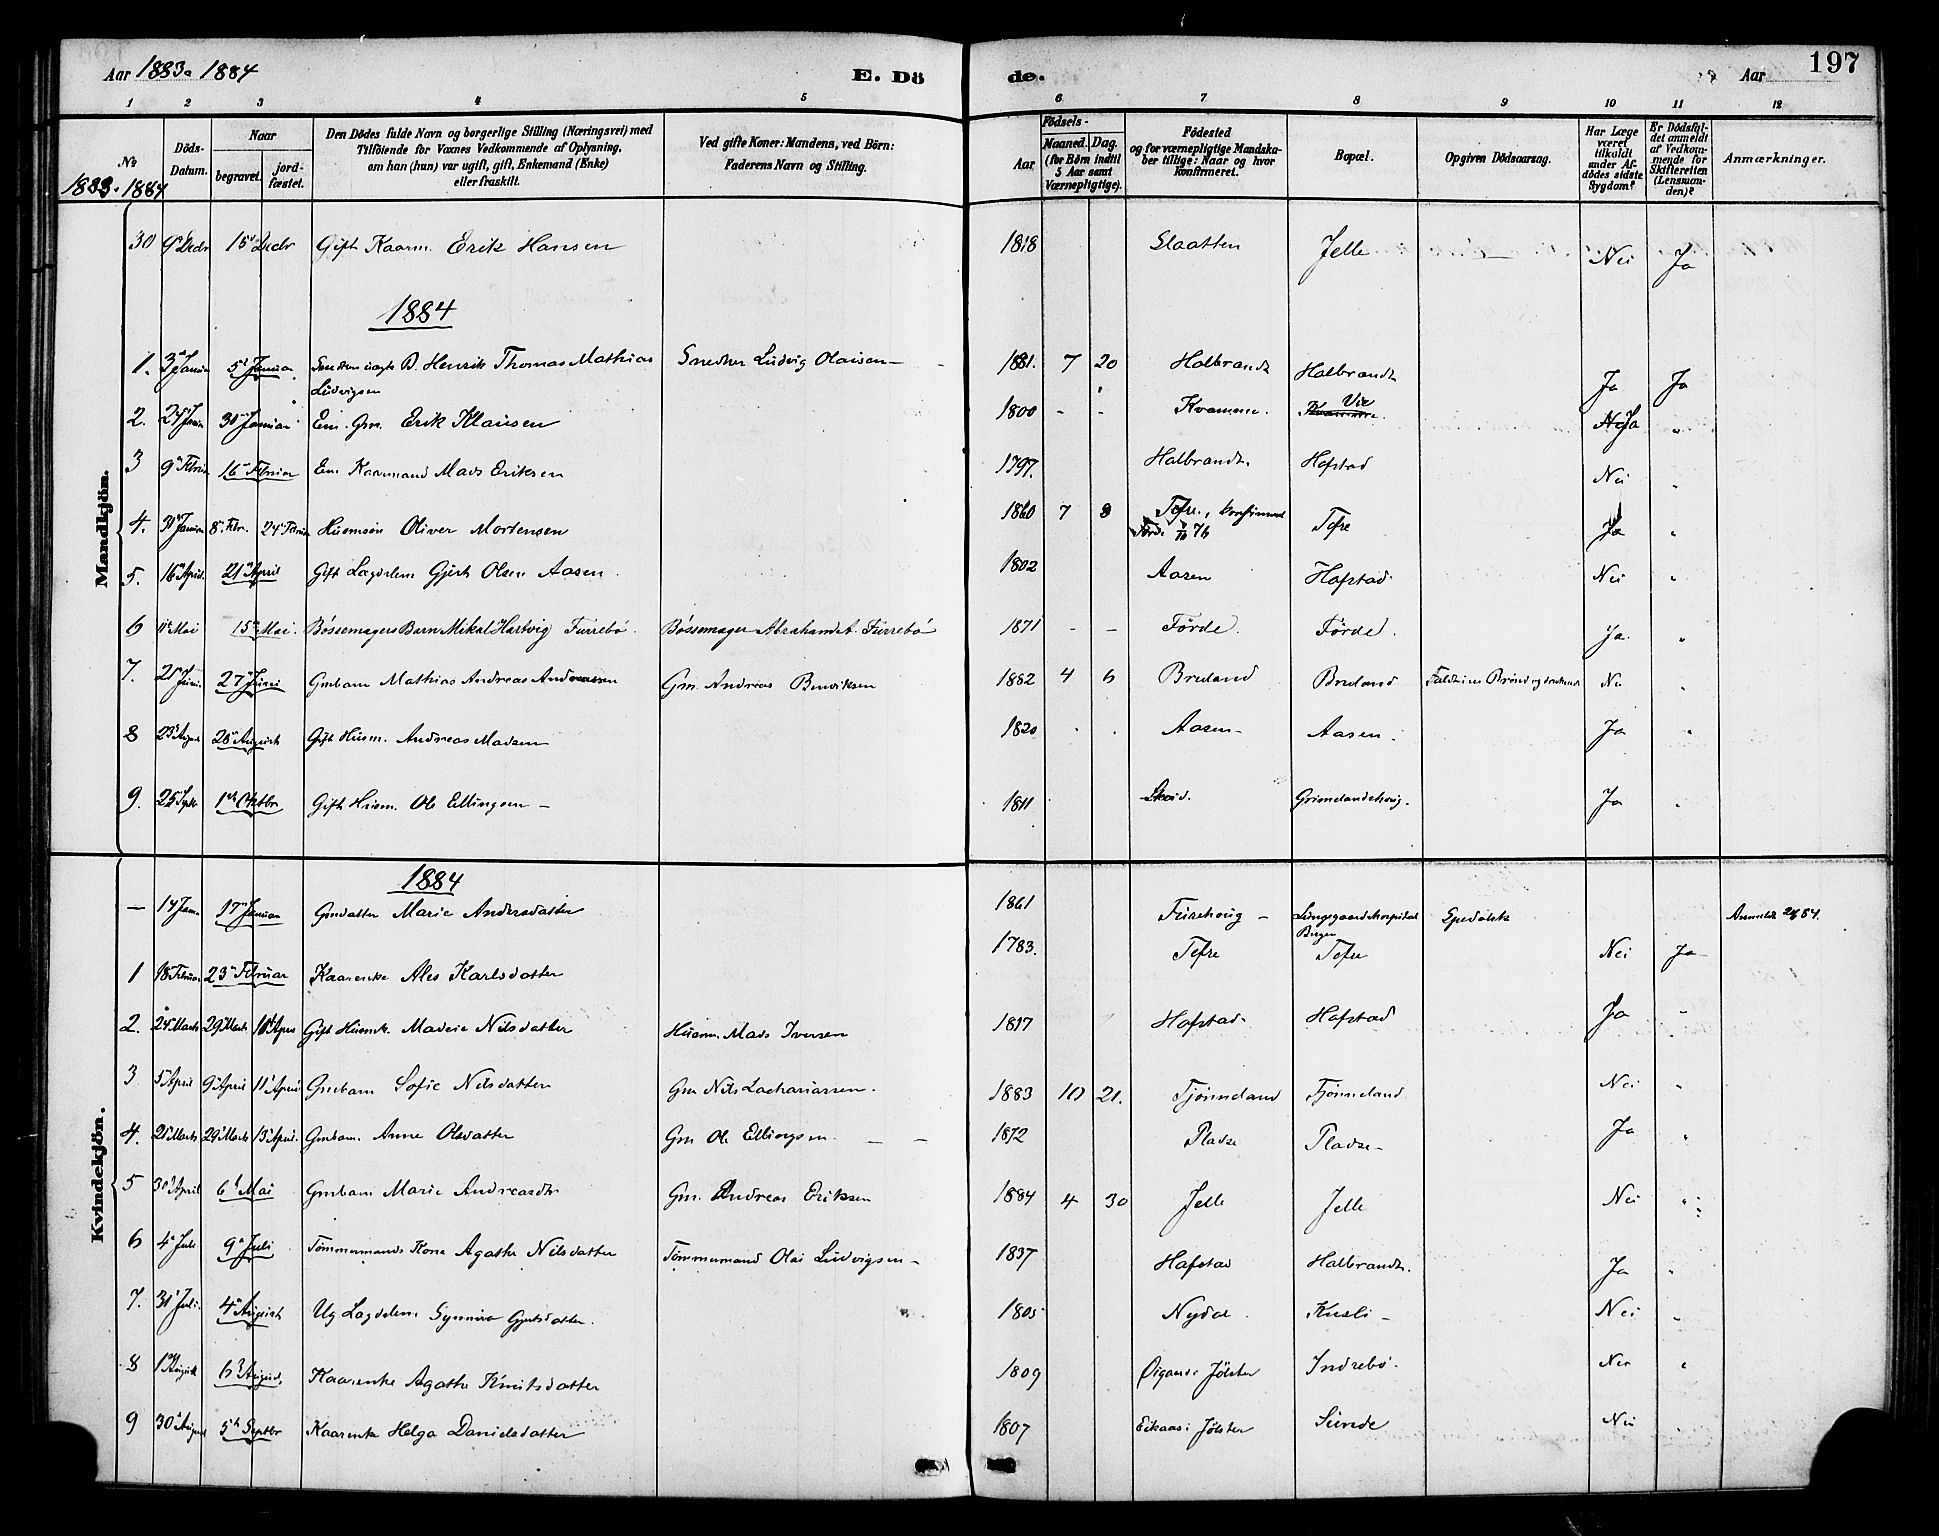 Aar 1883. 1884 E. Dö de. Aar 197
1 2 3 4 5 6 7 8 9 10 11 12
No 1883. 1884
Döds-Datum.
Naar
begravet.
jord-fæstet.
Den Dödes fulde Navn og borgerlige Stilling (Næringsvei) med
Tilföiende for Voxnes Vedkommende af Oplysning,
om han (hun) var ugift, gift, Enkemand (Enke)
eller fraskilt.
Ved gifte Koner: Mandens, ved Börn:
Faderens Navn og Stilling.
Födsels-
Aar
Maaned. Dag.
(for Börn indtil
5 Aar samt
Værnepligtige).
Födested
og for værnepligtige Mandska-
ber tillige: Naar og hvor
konfirmeret.
Bopæl.
Opgiven Dödsaarsag.
Har Læge
været
tilkaldt
under Af-
dödes sidste
Sygdom?
Er Dödsfal-
det anmeldt
af Vedkom-
mende for
Skifteretten
(Lensman-
den)?
Anmærkninger.
Mandkjön.
30 9 Decbr 15 Decbr Gift Kaarm. Erik Hansen 1818 Slaatten Jelle Nei Ja
1884
1. 3 Januar 5 Januar B. Henrik Thomas Mathias Snedker Ludvig Olaisen 1881. 7 20 Halbrandt Halbrandt Ja Ja
Ludvigsen
2. 24 Januar 30 Januar Em. Gm. Erik Klausen 1800 - - Kvamme. Kvamme. Vie Ja "
3 9 Februar 16 Februar Em Kaarmand Mads Eriksen 1797. Halbrandt. Hafstad Nei "
4. 30 Januar 8 Febr. 24 Februar Husmsön Oliver Mortensen 1860 7 8 Tefre., konfirmeret Tefre Ja "
Förde 76
5. 16 April 21 April Gift Lægdslem Gjert Olsen Aasen 1802 Aasen Hafstad Nei "
6 11 Mai 15 Mai. Bössemagers Barn Mikal Hartvig Furrebö. Bössemager Abraham A. Furrebö 1871 - - Förde. Förde. Ja. "
7. 25 Juni 27 Juni Gmbarn Mathias Andreas Andreassen Gm. Andreas Bendiksen 1882 4 6 Breland Breland Faldt i en Brönd og druknede Nei "
8 23 August 28 August Gift Husm. Andreas Madsen 1820 Aasen Aasen. Ja "
9. 25 Septbr 1 Oktbr Gift Husm. Ole Ellingsen 1811 Grimelandshoug. Ja "
Kvindekjön.
1884
- 14 Jan. 17 Januar Gmdatter Marie Andersdatter 1861 Furehoug Lungegaardshospital Bergen Spedalsk Anmeldt 84.
1 18 Februar 23 Februar Kaarenke Ales Karlsdatter 1783. Tefre Tefre Nei Ja
2. 24 Marts 29 Marts 16 April Gift Husmk. Madeie Nilsdatter Husm. Mads Iversen 1817 Hafstad Hafstad Ja "
3 5 April 9 April 11 April Gmbarn Sofie Nilsdatter Gm Nils Zachariassen. 1883 10 21. Tjönneland Tjönneland Nei "
4. 21 Marts 29 Marts 13 April Gmbarn. Anne Olsdatter Gm Ole Ellingsen 1872 Pladse Pladse Ja "
5 30 April 6 Mai Gmbarn Marie Andreasdtr Gm. Andreas Eriksen 1884 4 30 Jelle Jelle Nei "
6 4 Juli 9 Juli Tömmermands Kone Agathe Nilsdatter Tömmermand Olai Ludvigsen 1837 Hafstad Halbrandt. Ja "
7. 31 Juli 4 August Ug Lægdslem Synneva Gjertsdatter. 1805 Nydal. Kusli Nei "
8 1 August 6 August Kaarenke Agathe Knutsdatter 1809 Jölster Indrebö. Nei "
9 30 August 5 Septbr Kaarenke Helga Danielsdatter 1807 Eikaas i Jölster Sunde Nei "